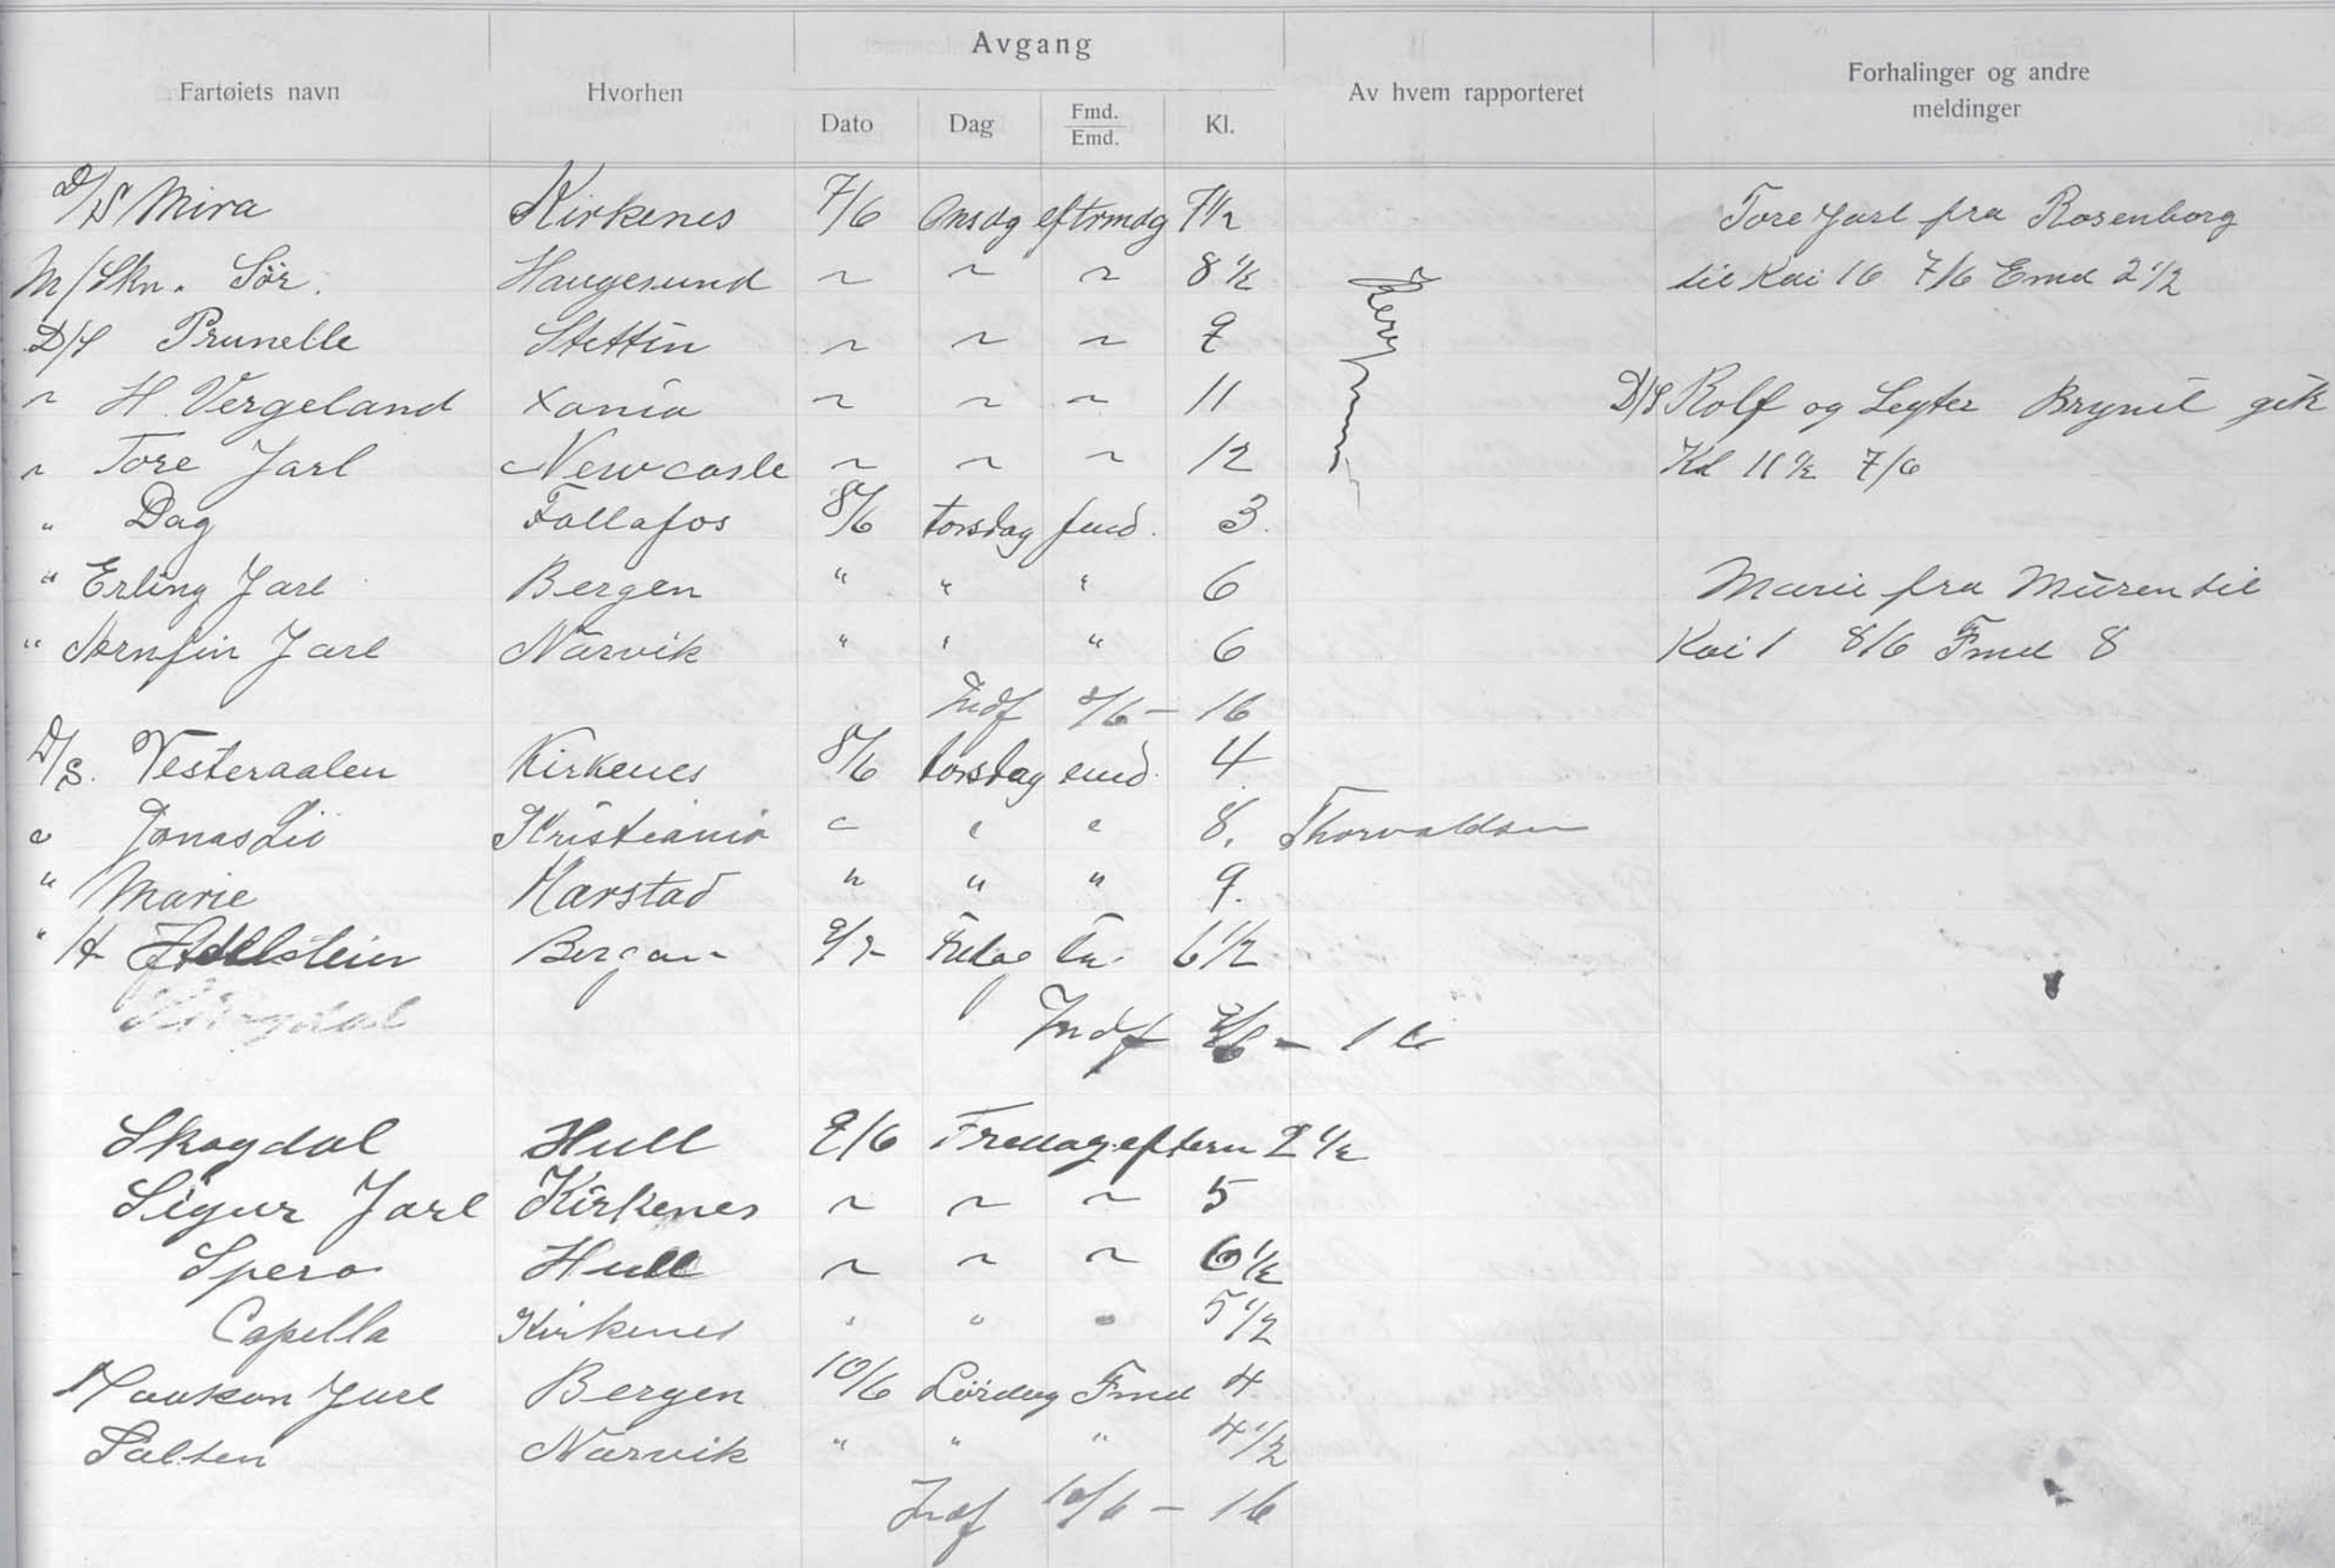 Avgang
Fartøiets navn Hvorhen Dato Dag Fmd. Emd. Kl. Av hvem rapporteret Forhalinger og andre meldinger
D/S Mira Kirkenes 7/6 Onsdg eftrmdg 7 1/2 Tore Jarl fra Rosenborg
M/Skn. Sör. Haugesund ~ ~ ~ 8 1/2 til Kai 16 7/6 Emd 2 1/2
D/S Prunelle Stettin ~ ~ ~ 9
~ H. Vergeland Xania ~ ~ ~ 11 D/S Rolf og Legter Brynil gik
~ Tore Jarl Newcasle ~ ~ ~ 12 Kl 11 1/2 7/6
" Dag Follafos 8/6 torsdag fmd. 3.
" Erling Jarl Bergen " " " 6 Marie fra Muren til
" Arnfin Jarl Narvik " " " 6 Kai 1 8/6 Fmd 8
Indf 8/6 – 16
D/S. Vesteraalen Kirkenes 8/6 torsdag emd. 4
" Jonas Lie Kristiania " " " 8. Thorvaldsen
" Marie Harstad " " " 9.
" H Adelstein Bergen 6 1/2
Indf 9/6 – 16
Skogdal Hull 9/6 Fredag eftern 2 1/2
Sigur Jarl Kirkenes ~ ~ ~ 5
Spero Hull ~ ~ ~ 6 1/2
Capella Kirkenes " " " 5 1/2
Haakon Jarl Bergen 10/6 Lördag Fmd 4
Salten Narvik " " " 4 1/2
Indf 10/6 – 16